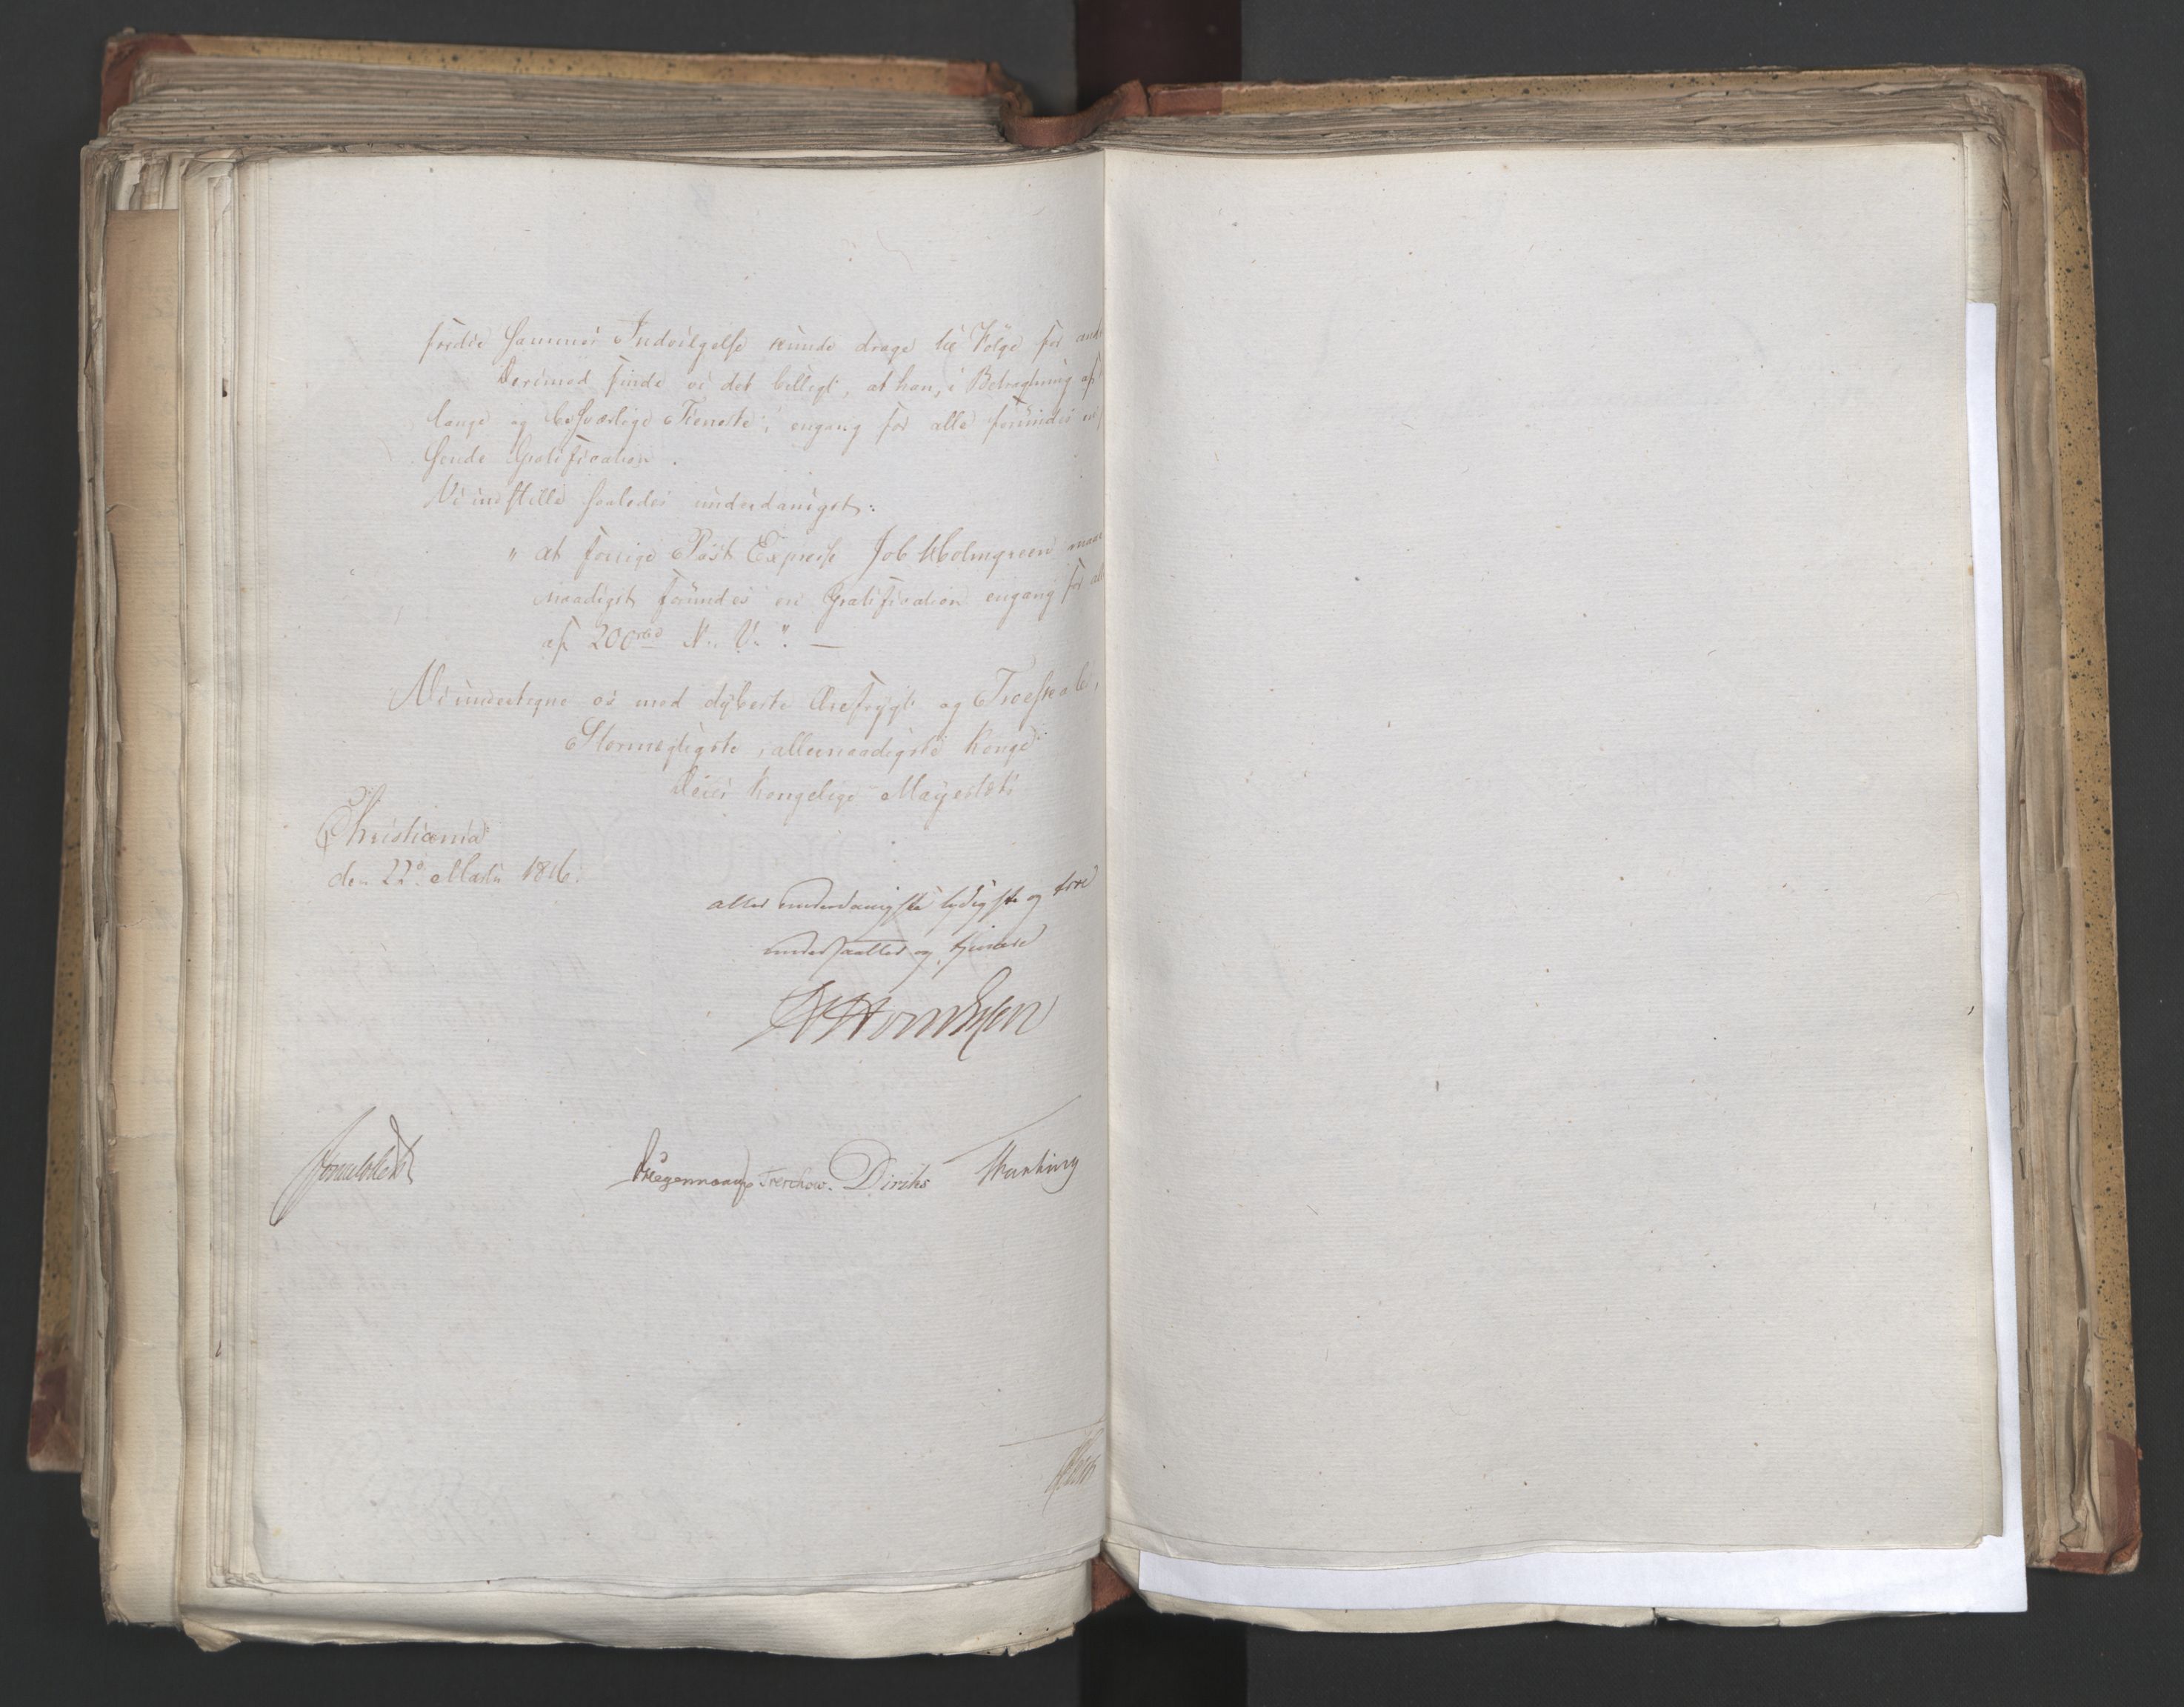 fordie sammes Indvilgelse kunde drage til Følge for and
Derimod finde vi det billigt, at han, i Betragtning af
lange og besværlige Tieneste, engang for alle forundes en
sende Gratification.
Vi indstille saaledes underdanigst:
" at forrige Post Expeise Job Holmgreen maae
naadigst forundes en Gratification engang for all
af 200 rbd N. V. ". —
Vi undertegne os med dybeste Ærefrygt og Troeskab,
Stormægtigste, allernaadigste Konge
Deres Kongelige Mayestæts
Christiania
den 22de Martii 1816.
allerunderdanigste lydigste og troe
undersaatter og tjenere
Kregennaas Treschow. Diriks